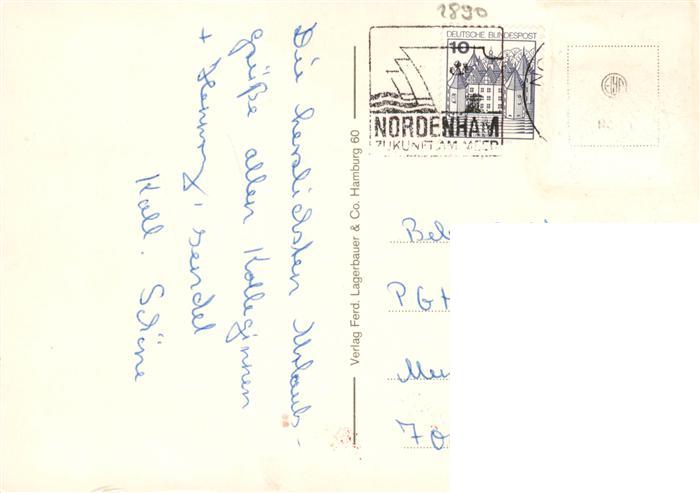 1890
DEUTSCHE BUNDESPOST
10
NORDENHAM
ZUKUNFT AM MEER
Die herzlichsten Urlaubs-
grüße allen Kolleginnen
+ Henning, sendet
Koll. Schöne
Verlag Ferd. Lagerbauer & Co. Hamburg 60
PGH
70